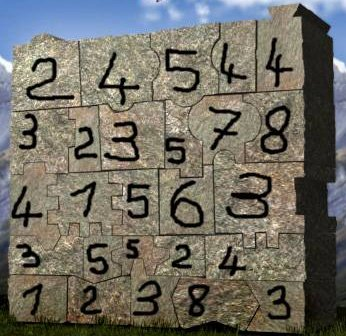 2 4 5 4 4
3 2 3 5 7 8
4 1 5 6 3
3 5 5 2 4
1 2 3 8 3